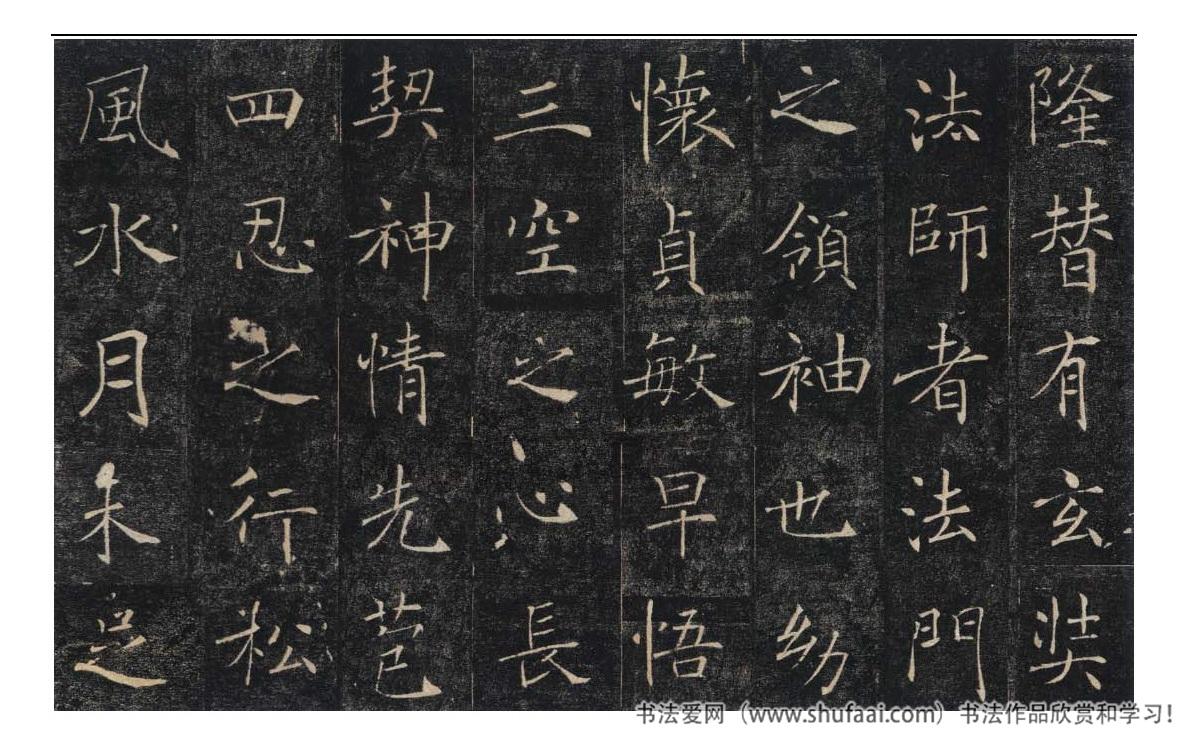 隆替有玄奘
法師者法門
之領袖也幼
懷貞敏早悟
三空之心長
契神情先苞
四忍之行松
風水月未足
书法爱网（www.shufaai.com）书法作品欣赏和学习！